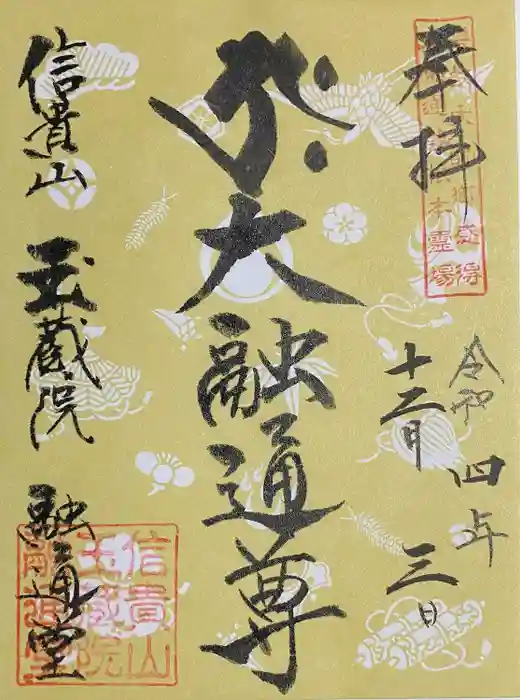 奉拝
令和四年
十二月三日
大融通尊
信貴山 玉蔵院 融通堂
信貴山
玉蔵院
融通堂